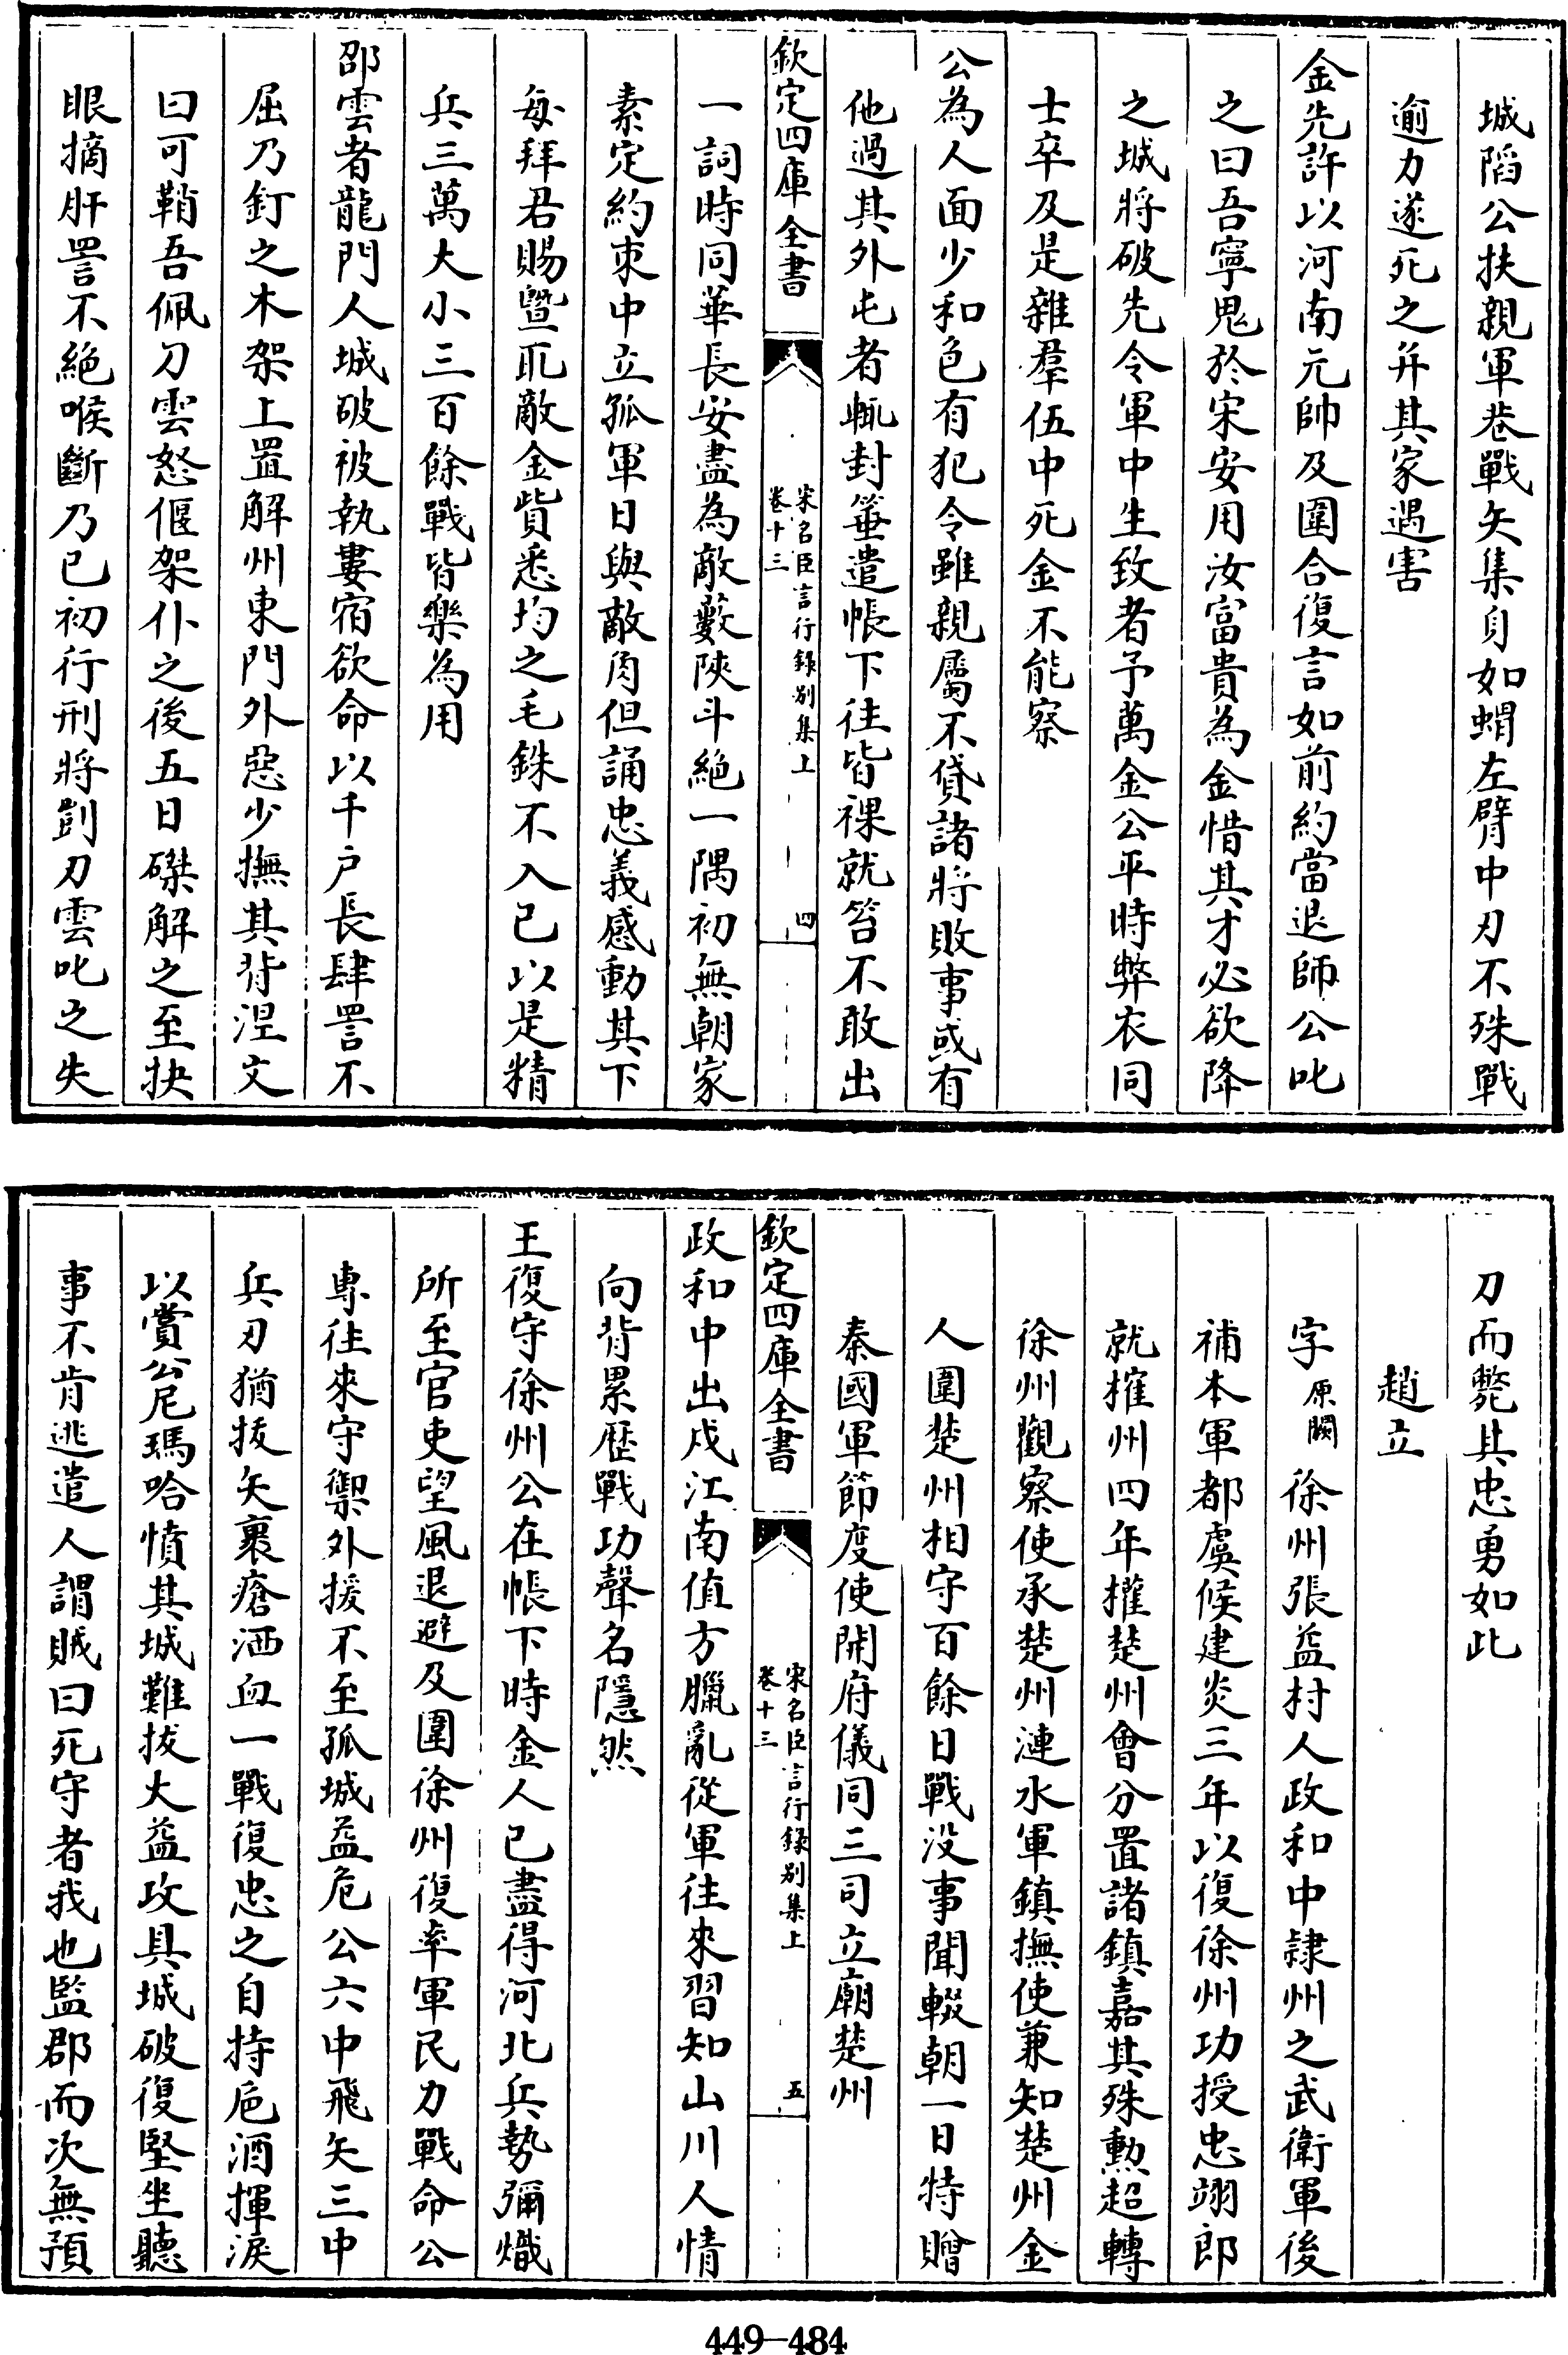 城陷公扶親軍巷戰矢集身如蝟左臂中刃不殊戰
逾力遂死之并其家遇害
金先許以河南元帥及圍合復言如前約當退師公叱
之曰吾寧鬼於宋安用汝富貴為金惜其才必欲降
之城將破先令軍中生致者予萬金公平時弊衣同
士卒及是雜羣伍中死金不能察
公為人面少和色有犯令雖親屬不貸諸將敗事或有
他過其外屯者輒封箠遣帳下往皆祼就笞不敢出
欽定四庫全書
宋名臣言行録别集上
卷十三
四
一詞時同華長安盡為敵藪陜斗絶一隅初無朝家
素定約束中立孤軍日與敵角但誦忠義感動其下
每拜君賜暨取敵金貲悉均之毛銖不入已以是精
兵三萬大小三百餘戰皆樂為用
邵雲者龍門人城破被執婁宿欲命以千户長肆詈不
屈乃釘之木架上置解州東門外惡少撫其背涅文
曰可鞘吾佩刀雲怒偃架仆之後五日磔解之至抉
眼摘肝詈不絶喉斷乃已初行刑將剴刃雲叱之失
刀而斃其忠勇如此
趙立
字原闕徐州張益村人政和中隷州之武衛軍後
補本軍都虞候建炎三年以復徐州功授忠翊郎
就搉州四年權楚州會分置諸鎮嘉其殊勲超轉
徐州觀察使承楚州漣水軍鎮撫使兼知楚州金
人圍楚州相守百餘日戰没事聞輟朝一日特贈
秦國軍節度使開府儀同三司立廟楚州
欽定四庫全書
宋名臣言行録别集上
卷十三
五
政和中出戍江南值方臘亂從軍往來習知山川人情
向背累歴戰功聲名隱然
王復守徐州公在帳下時金人已盡得河北兵勢彌熾
所至官吏望風退避及圍徐州復率軍民力戰命公
專往來守禦外援不至孤城益危公六中飛矢三中
兵刃猶拔矢裹瘡洒血一戰復忠之自持巵酒揮淚
以賞公尼瑪哈憤其城難拔大益攻具城破復堅坐聽
事不肯逃遣人謂賊曰死守者我也監郡而次無預
449-484